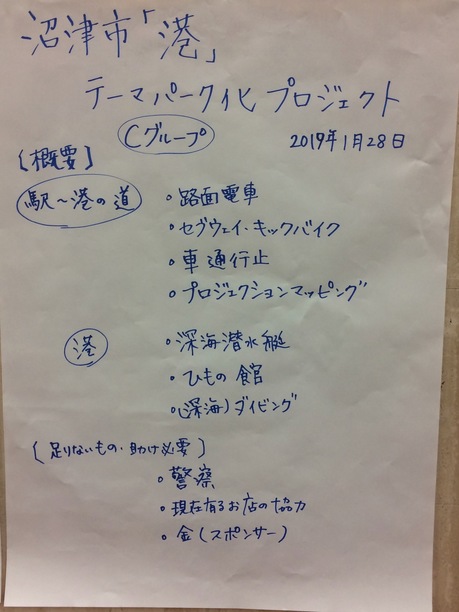 沼津市「港」
テーマパーク化プロジェクト
Cグループ
2019年1月28日
[概要]
駅～港の道
・路面電車
・セグウェイ・キックバイク
・車通行止
・プロジェクションマッピング
港
・深海潜水艇
・ひもの館
・(深海)ダイビング
[足りないもの・助け必要]
・警察
・現在有るお店の協力
・金(スポンサー)